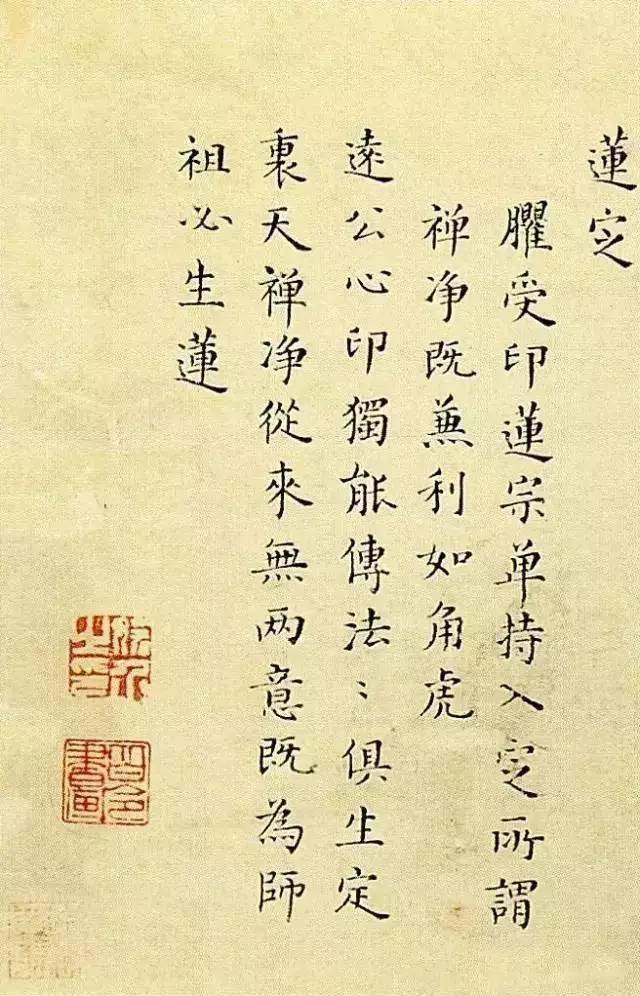 蓮定
臞受印蓮宗單持入定所謂
禅净既兼利如角虎
遠公心印獨能傳法〻俱生定
裏天禅净從來無两意既為師
祖必生蓮